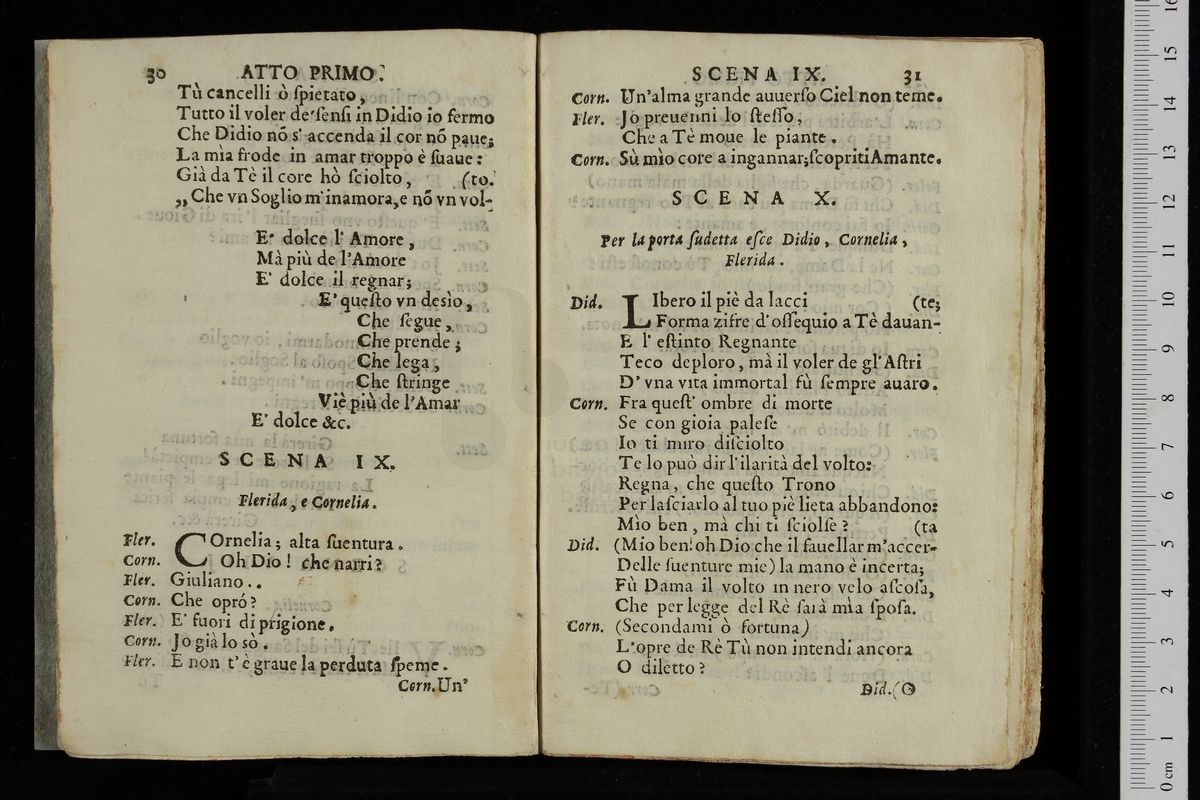 30 ATTO PRIMO.
Tù cancelli ò ſpietato,
Tutto il voler de' ſenſi in Didio io fermo
Che Didio nõ s' accenda il cor nõ paue;
La mìa frode in amar troppo è ſuaue:
Già da Tè il core hò ſciolto, (to.
„Che vn Soglio m'inamora, e nõ vn vol-
E' dolce l' Amore,
Mà più de l'Amore
E' dolce il regnar;
E' queſto vn desìo,
Che ſegue,
Che prende;
Che lega,
Che ſtringe
Viè più de l'Amar
E' dolce &c.
SCENA IX.
Flerida, e Cornelia.
Fler. COrnelia; alta ſuentura.
Corn. Oh Dio! che narri?
Fler. Giuliano..
Corn. Che opró?
Fler. E' fuori di prigione.
Corn. Jo già lo sò.
Fler. E non t' è graue la perduta ſpeme.
Corn. Un'
SCENA IX. 31
Corn. Un'alma grande auuerſo Ciel non teme.
Fler. Jo preuenni lo ſteſſo,
Che a Tè moue le piante.
Corn. Sù mìo core a ingannar; ſcopriti Amante.
SCENA X.
Per la porta ſudetta eſce Didio, Cornelia,
Flerida.
Did. LIbero il piè da lacci (te;
Forma zifre d'oſſequio a Tè dauan-
E l' eſtinto Regnante
Teco deploro, mà il voler de gl'Aſtri
D' vna vita immortal fù ſempre auaro.
Corn. Fra queſt' ombre di morte
Se con gioia paleſe
Io ti miro diſciolto
Te lo può dir l'ilarità del volto:
Regna, che queſto Trono
Per laſciarlo al tuo piè lieta abbandono:
Mìo ben, mà chi ti ſciolſe? (ta
Did. (Mio ben! oh Dio che il fauellar m'accer-
Delle ſuenture mie) la mano è incerta;
Fù Dama il volto in nero velo aſcoſa,
Che per legge del Rè ſarà mìa ſpoſa.
Corn. (Secondami ò fortuna)
L'opre de Rè Tù non intendi ancora
O diletto?
Did. (O
16
15
14
13
12
11
10
9
8
7
6
5
4
3
2
1
0 cm